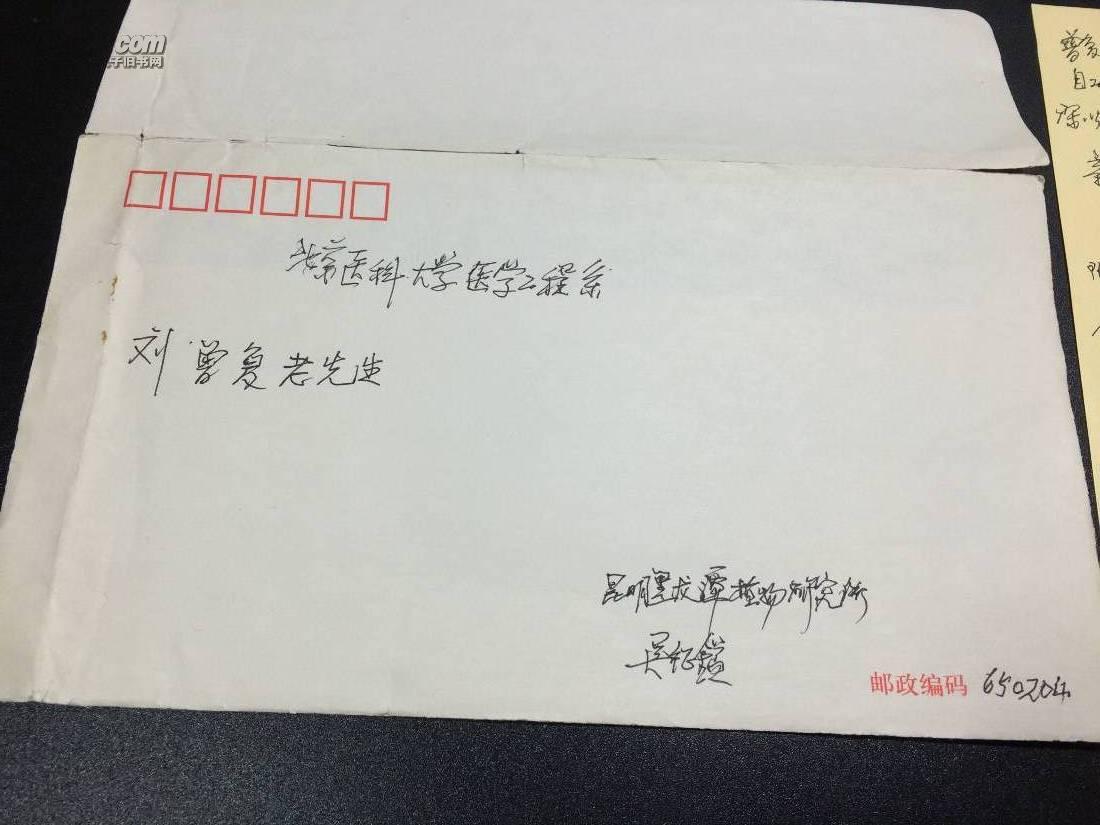 .com
子旧书网
北京医科大学医学工程系
刘曾复老先生
昆明黑龙潭植物研究所
吴征镒
邮政编码 650204
曾复